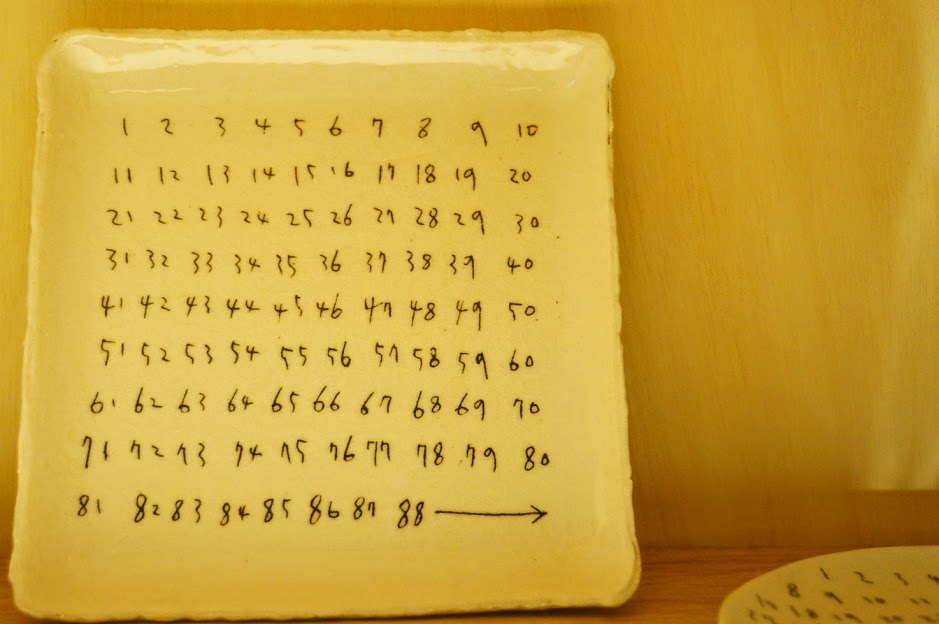 1 2 3 4 5 6 7 8 9 10
11 12 13 14 15 16 17 18 19 20
21 22 23 24 25 26 27 28 29 30
31 32 33 34 35 36 37 38 39 40
41 42 43 44 45 46 47 48 49 50
51 52 53 54 55 56 57 58 59 60
61 62 63 64 65 66 67 68 69 70
71 72 73 74 75 76 77 78 79 80
81 82 83 84 85 86 87 88 →
1 2 3 4
8 9 10 11